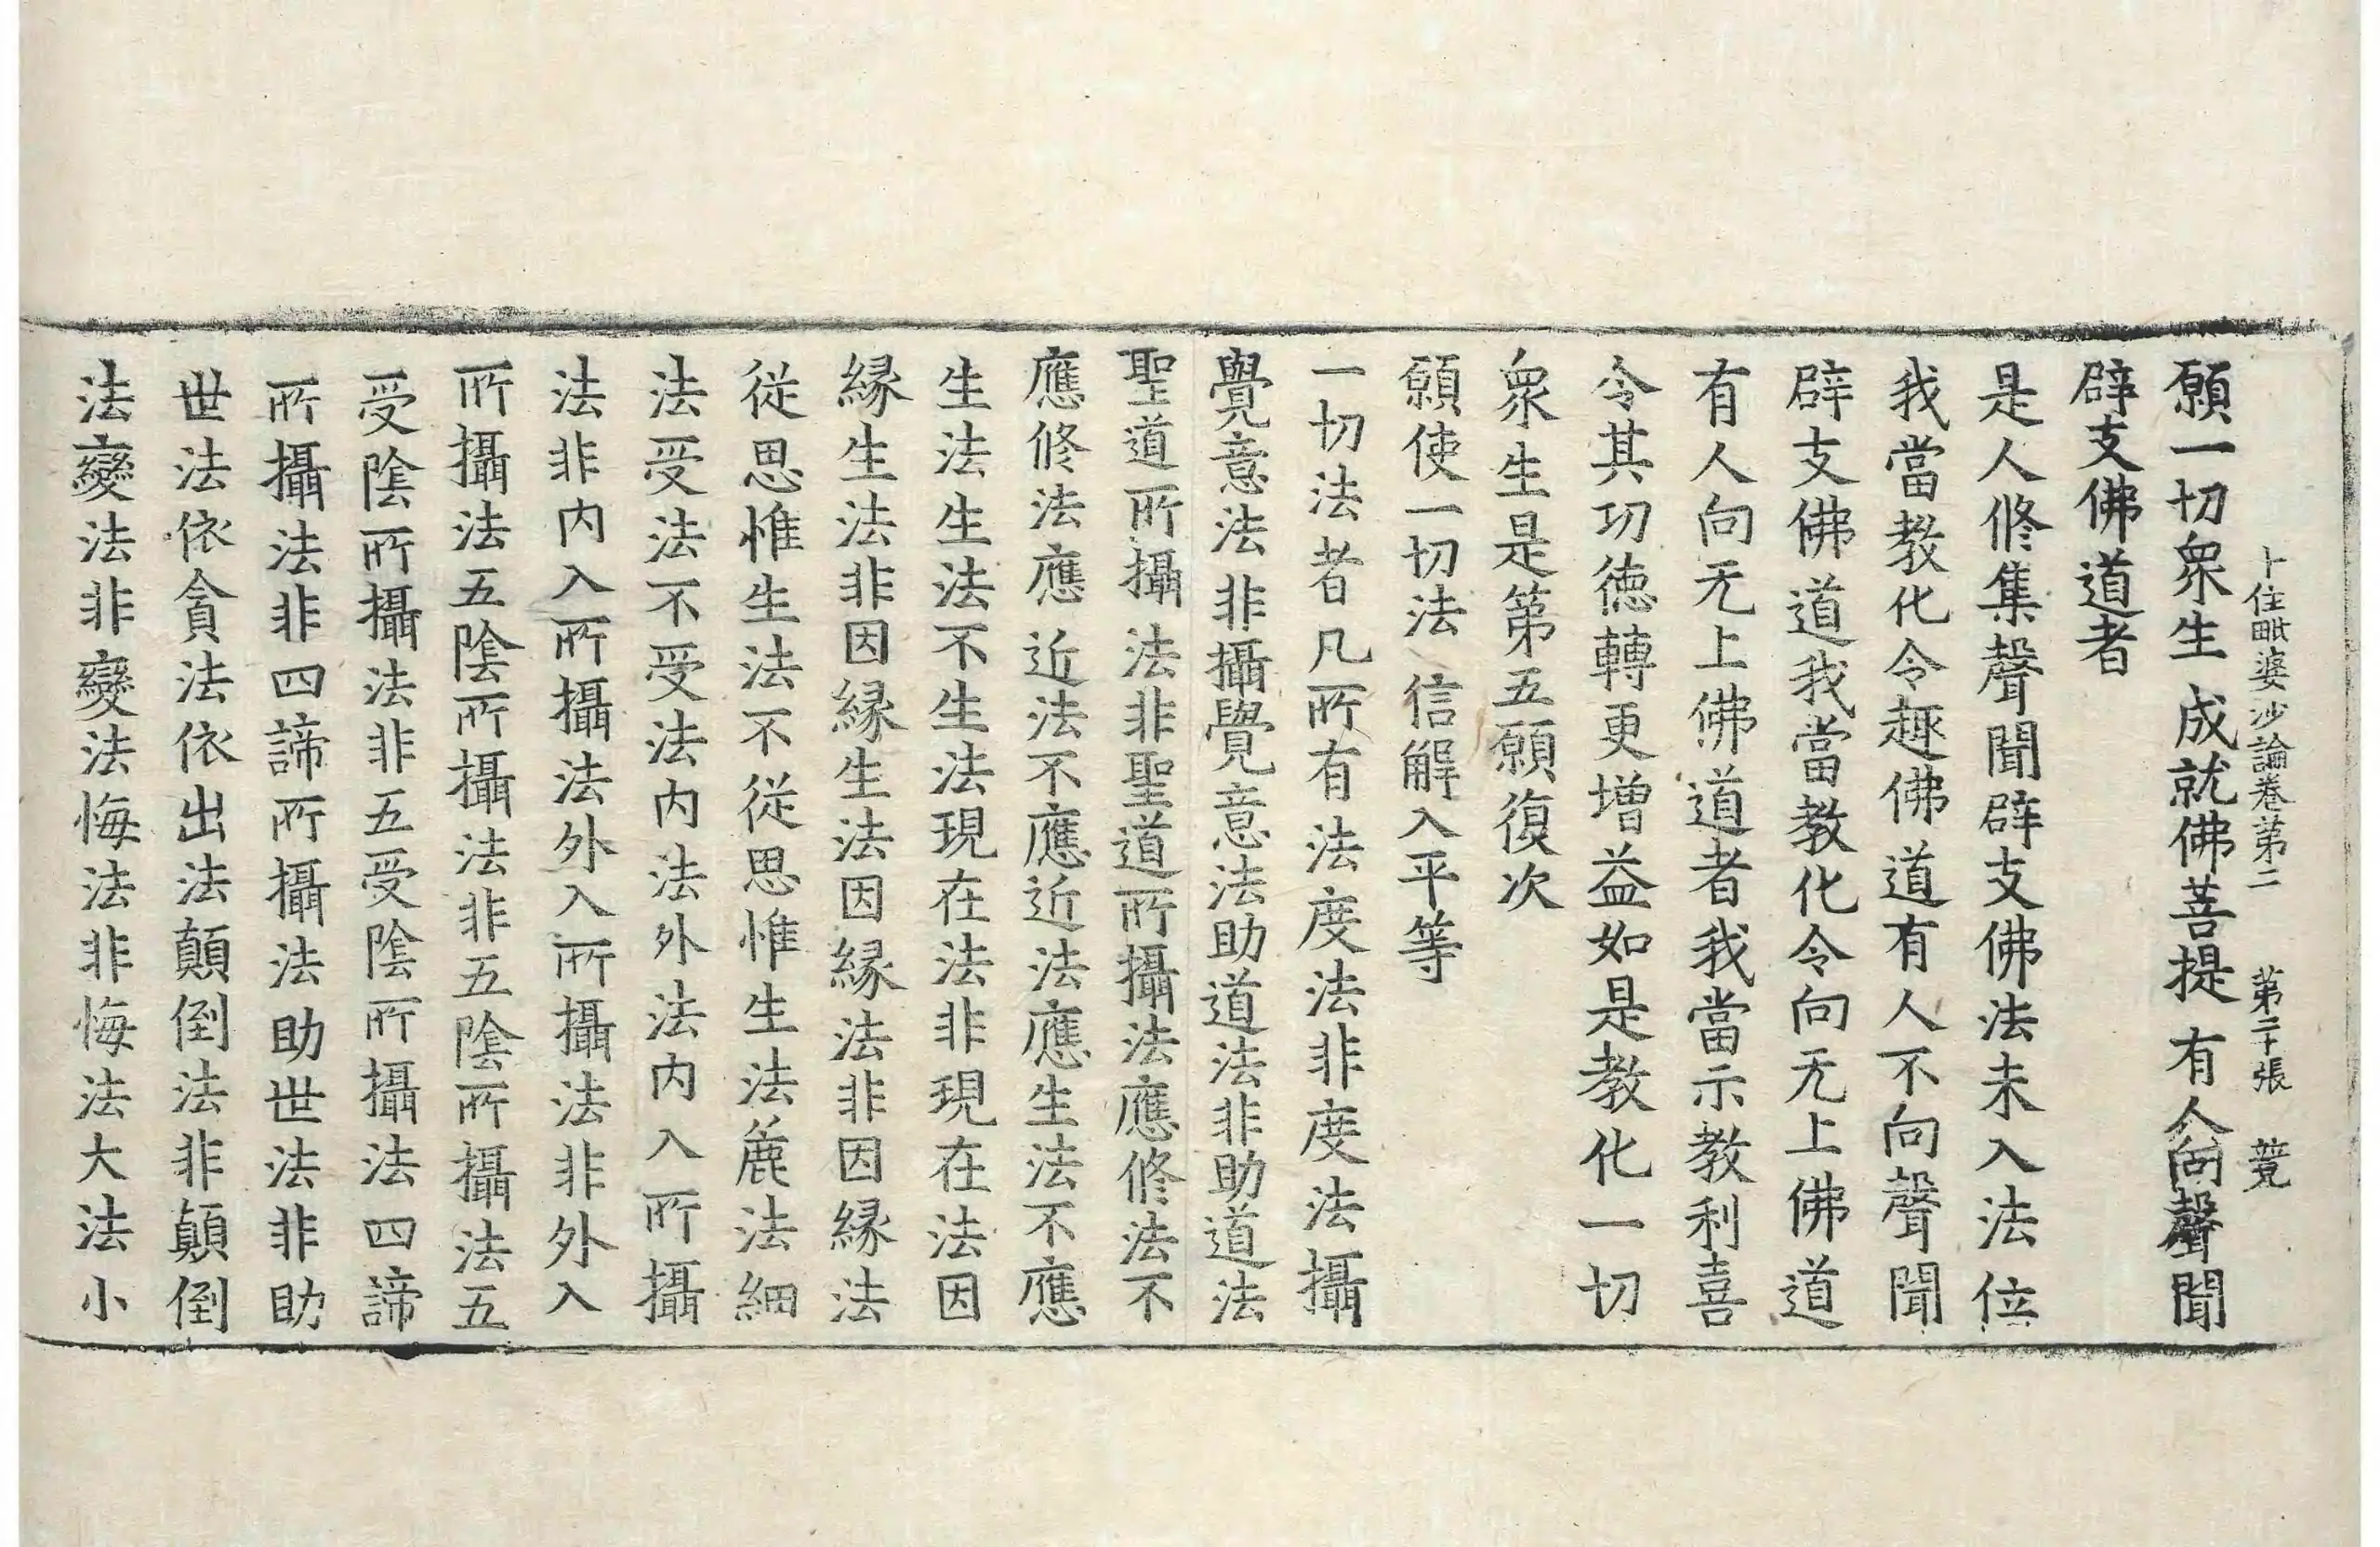 十住毗婆沙論卷第二 第二十張 競
願一切衆生成就佛菩提有人向聲聞
辟支佛道者
是人修集聲聞辟支佛法未入法位
我當教化令趣佛道有人不向聲聞
辟支佛道我當教化令向无上佛道
有人向无上佛道者我當示教利喜
令其功德轉更增益如是教化一切
衆生是第五願復次
願使一切法信解入平等
一切法者凡所有法度法非度法攝
覺意法非攝覺意法助道法非助道法
聖道所攝法非聖道所攝法應修法不
應修法應近法不應近法應生法不應
生法生法不生法現在法非現在法因
緣生法非因緣生法因緣法非因緣法
從思惟生法不從思惟生法麁法細
法受法不受法內法外法內入所攝
法非內入所攝法外入所攝法非外入
所攝法五陰所攝法非五陰所攝法五
受陰所攝法非五受陰所攝法四諦
所攝法非四諦所攝法助世法非助
世法依貪法依出法顛倒法非顛倒
法變法非變法悔法非悔法大法小